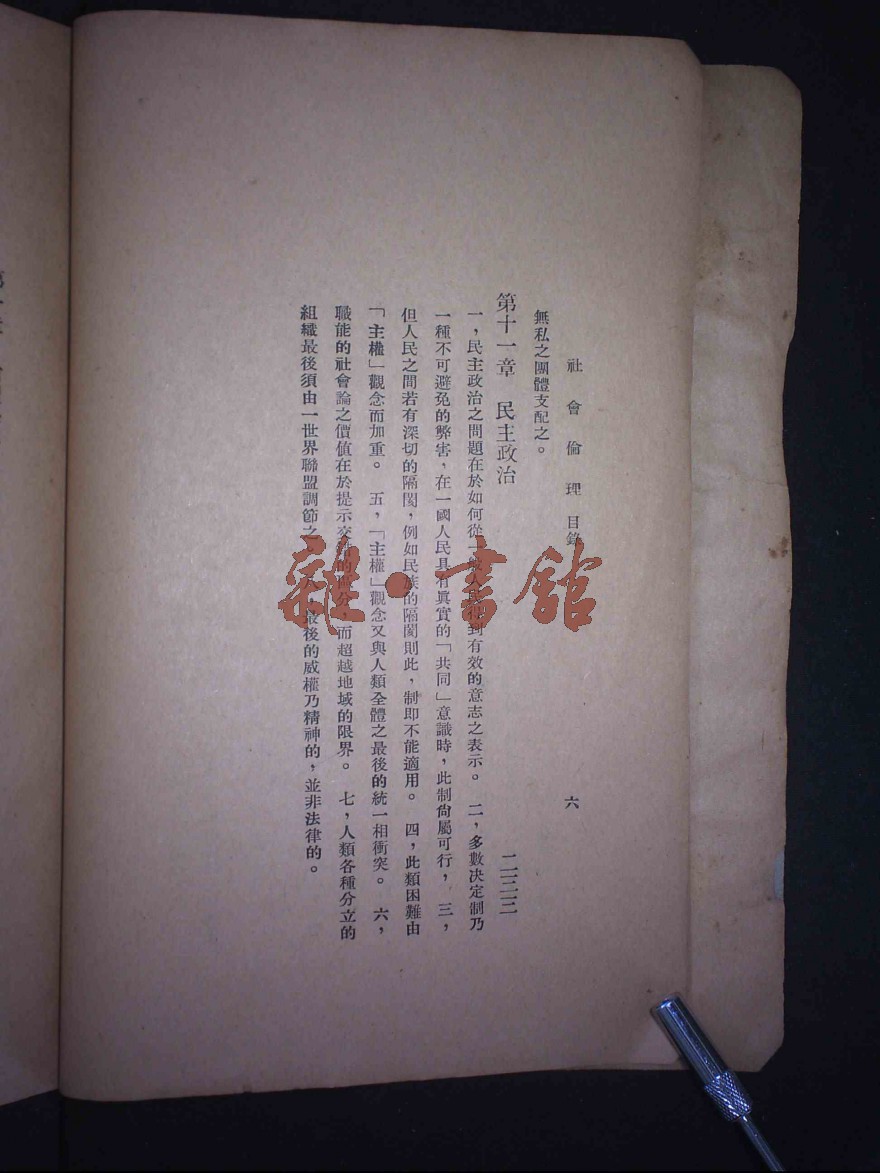 社會倫理 目錄 六
無私之團體支配之。
第十一章 民主政治 二三三
一，民主政治之問題在於如何從一般人民得到有效的意志之表示。 二，多數決定制乃
一種不可避免的弊害，在一國人民具有眞實的「共同」意識時，此制尙屬可行， 三，
但人民之間若有深切的隔閡，例如民族的隔閡則此，制即不能適用。 四，此類困難由
「主權」觀念而加重。 五，「主權」觀念又與人類全體之最後的統一相衝突。 六，
職能的社會論之價值在於提示交 的 分 而超越地域的限界。 七，人類各種分立的
組織最後須由一世界聯盟調節之 八，最後的威權乃精神的，並非法律的。
雜·書館